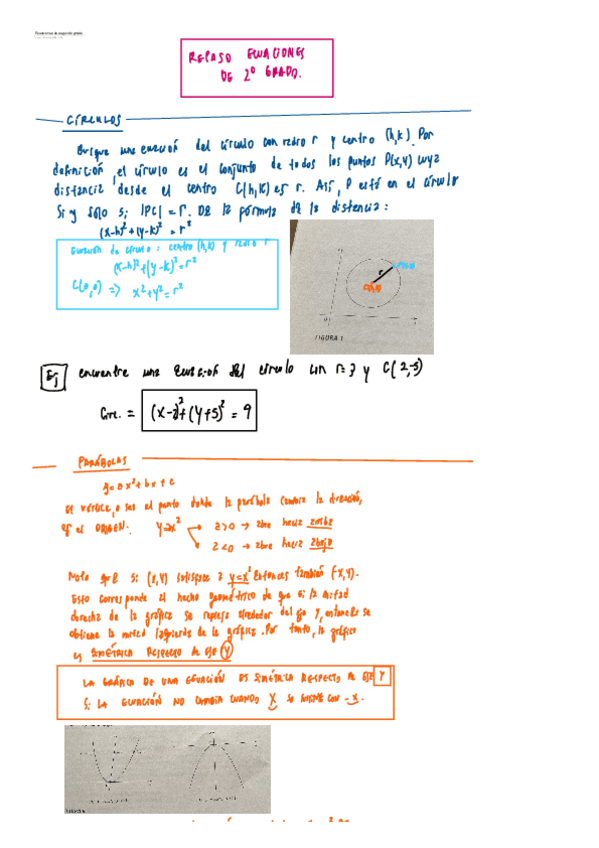 Ecuaciones de segundo grado
REPASO ECUACIONES
DE 2º GRADO.
CÍRCULOS
Busque una ecuación del círculo con radio r y centro (h,k). Por
definición, el círculo es el conjunto de todos los puntos P(x,y) cuya
distancia desde el centro C(h,k) es r. Así, P está en el círculo
Si y sólo si |PC| = r. De la fórmula de la distancia:
(x-h)²+(y-k)² = r²
Ecuación de círculo: centro (h,k) y radio r
(x-h)²+(y-k)²=r²
C(0,0) => x²+y²=r²
FIGURA 1
Ej encuentre una ecuación del círculo con r=3 y C(2,-5)
Circ. = (x-2)²+(y+5)² = 9
PARÁBOLAS
y=ax²+bx+c
el vértice, o sea el punto donde la parábola cambia la dirección,
es el ORIGEN: y=ax²
a>0 → abre hacia arriba
a<0 → abre hacia abajo
Note que si (x,y) satisface a y=x² entonces también (-x,y).
Esto corresponde al hecho geométrico de que si la mitad
derecha de la gráfica se refleja alrededor del eje y, entonces se
obtiene la mitad izquierda de la gráfica. Por tanto, la gráfica
es SIMÉTRICA RESPECTO DE EJE Y
LA GRÁFICA DE UNA ECUACIÓN ES SIMÉTRICA RESPECTO AL EJE Y
Si LA ECUACIÓN NO CAMBIA CUANDO X se con -x.